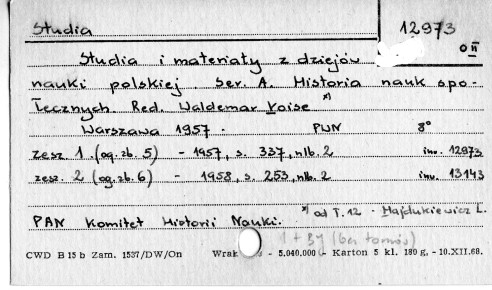 Studia
12973
O II
Studia i materiały z dziejów
nauki polskiej. Ser. A. Historia nauk spo-
łecznych Red. Waldemar Voise *)
Warszawa 1957. PWN 8°
zesz. 1 (og. zb. 5) - 1957, s. 337, nlb. 2 inw. 12973
zesz. 2 (og. zb. 6) - 1958, s. 253, nlb. 2 inw. 13143
*) od T. 12 - Hajdukiewicz L.
PAN Komitet Historii Nauki.
1 + BJ (bez tomów)
CWD B 15 b Zam. 1537/DW/On - 5.040.000 - Karton 5 kl. 180 g. - 10.XII.68.